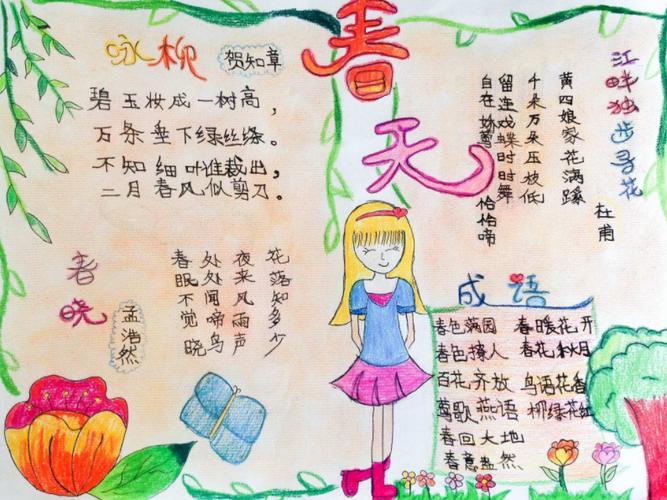 春天
咏柳
贺知章
碧玉妆成一树高，
万条垂下绿丝绦。
不知细叶谁裁出，
二月春风似剪刀。
江畔独步寻花
杜甫
黄四娘家花满蹊
千朵万朵压枝低
留连戏蝶时时舞
自在娇莺恰恰啼
春晓
孟浩然
春眠不觉晓
处处闻啼鸟
夜来风雨声
花落知多少
成语
春色满园 春暖花开
春色撩人 春花秋月
百花齐放 鸟语花香
莺歌燕语 柳绿花红
春回大地
春意盎然